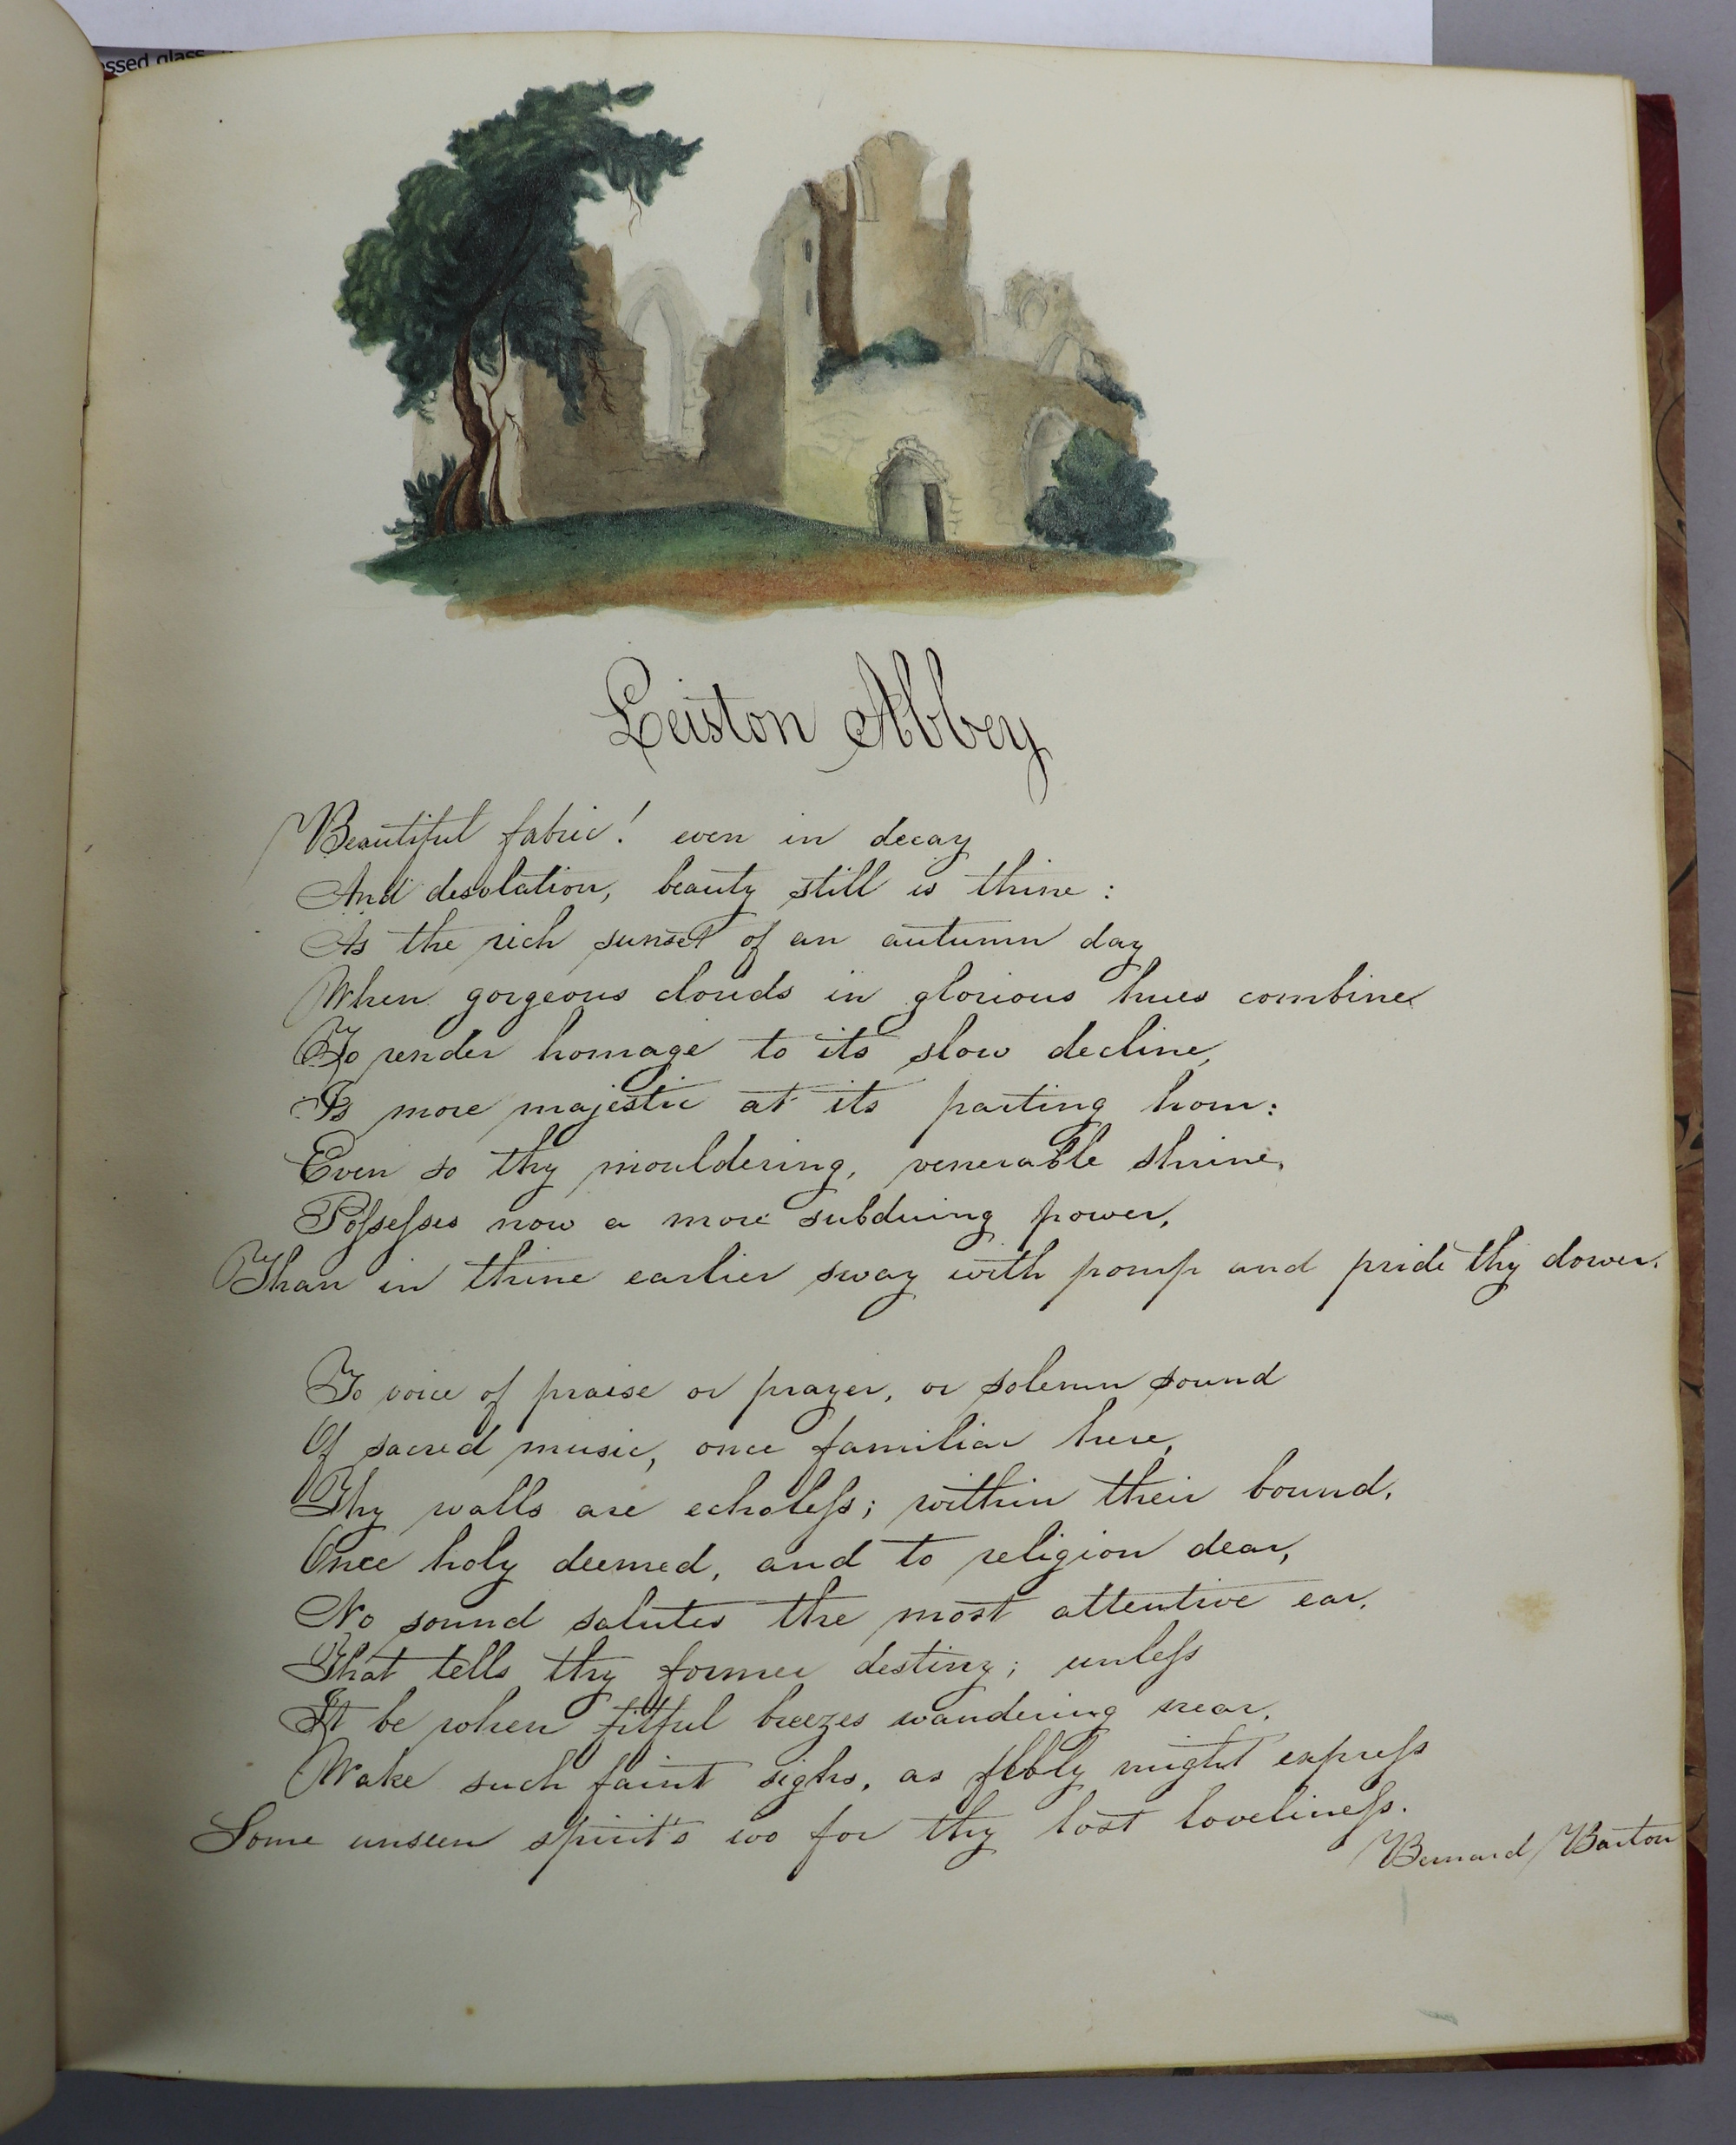 ssed glass
Leiston Abbey
Beautiful fabric! even in decay
And desolation, beauty still is thine:
As the rich sunset of an autumn day
When gorgeous clouds in glorious hues combine
To render homage to its slow decline,
Is more majestic at its parting hour:
Even so thy mouldering, venerable shrine,
Poſseſses now a more subduing power,
Than in thine earlier sway with pomp and pride thy dower.
To voice of praise or prayer, or solemn sound
Of sacred music, once familiar here,
Thy walls are echoleſs; within their bound,
Once holy deemed, and to religion dear,
No sound salutes the most attentive ear,
That tells thy former destiny; unleſs
It be when fitful breezes wandering near,
Wake such faint sighs, as might expreſs
Some unseen spirit's wo for thy lost lovelineſs.
Bernard Barton